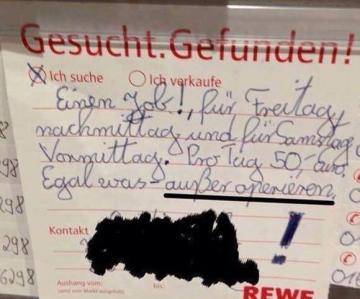 Gesucht.Gefunden!
Ich suche Ich verkaufe
Einen Job!, für Freitag
nachmittag und für Samstag
Vormittag. Pro Tag 50,- Euro.
Egal was - außer operieren
Kontakt !
Aushang vom: bis:
REWE
298
298
298
6298